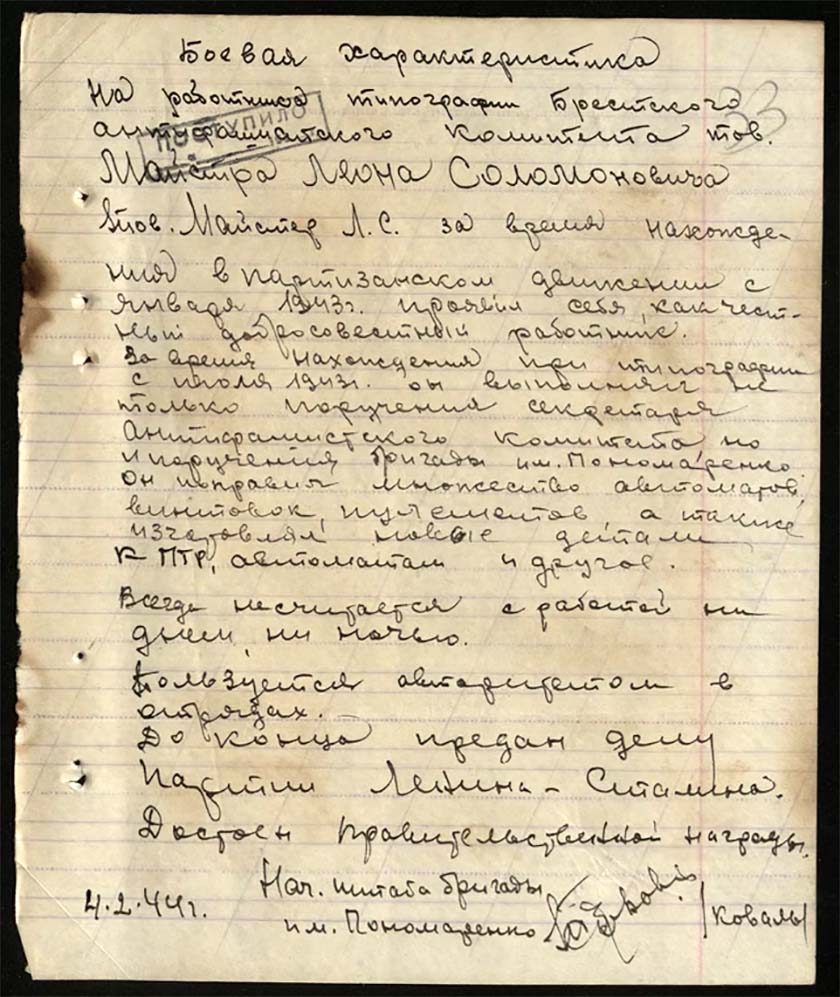 Боевая характеристика
33
На работника типографии Брестского
ПОСТУПИЛО
антифашиатского комитета тов.
Майстра Леона Соломоновича
Тов. Майстер Л.С. за время нахожде-
ния в партизанском движении с
января 1943г. проявил себя, как чест-
ный добросовестный работник.
За время нахождения при типографии
с июля 1943г. он выполнял не
только поручения секретаря
Антифашистского комитета но
и поручения бригады им. Пономаренко
он исправил множество автоматов,
винтовок, пулеметов, а также
изготовлял новые детали
к ПТР, автоматам и другое.
Всегда несчитается с работой ни
днем, ни ночью.
Пользуется авторитетом в
отрядах.
До конца предан делу
Партии Ленина – Сталина.
Достоен правительственной награды.
Нач. штаба бригады
4.2.44г.
им. Пономаренко /Коваль/